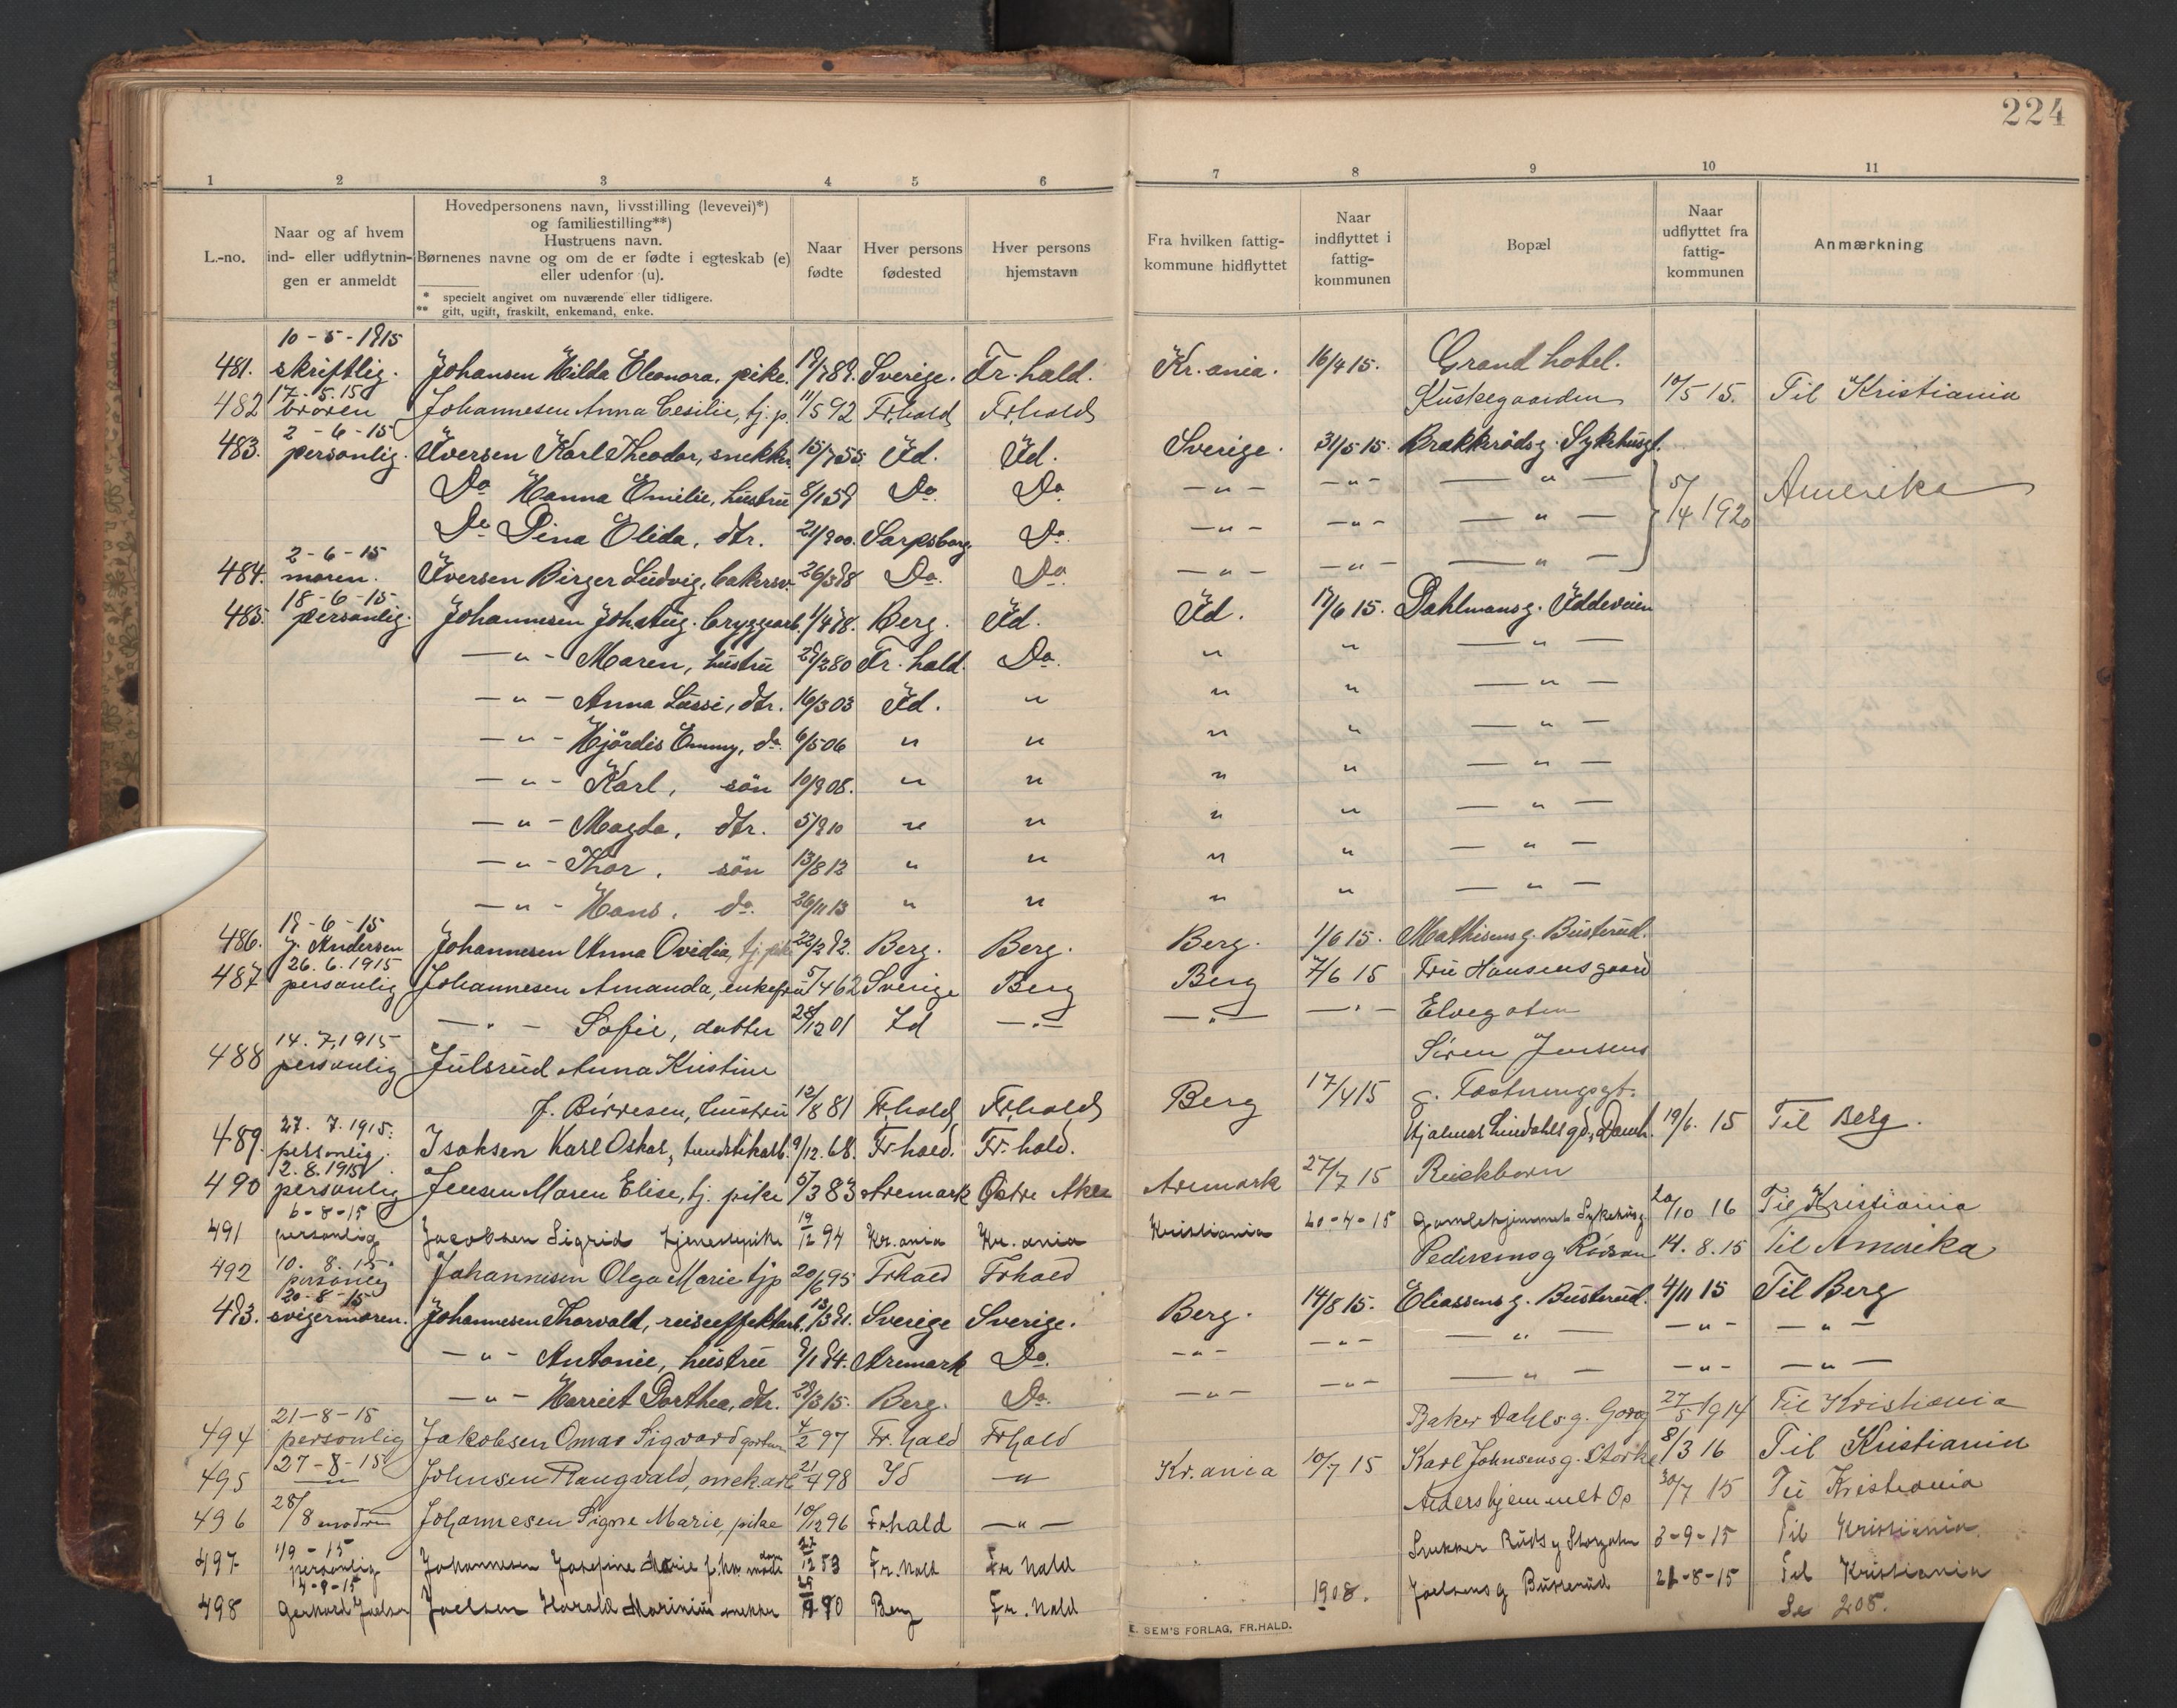 224
1 2 3 4 5 6 7 8 9 10 11
L.-no.
Naar og af hvem
ind- eller udflytnin-
gen er anmeldt
Hovedpersonens navn, livsstilling (levevei)*)
og familiestilling**)
Hustruens navn.
Børnenes navne og om de er fødte i egteskab (e)
eller udenfor (u).
* specielt angivet om nuværende eller tidligere.
** gift, ugift, fraskilt, enkemand, enke.
Naar
fødte
Hver persons
fødested
Hver persons
hjemstavn
Fra hvilken fattig-
kommune hidflyttet
Naar
indflyttet i
fattig-
kommunen
Bopæl
Naar
udflyttet fra
fattig-
kommunen
Anmærkning
10-5-1915
481. skriftlig. Johansen Hilda Eleonora, pike. 19/7 89. Sverige. Fr.hald. Kr.ania. 16/4 15. Grand hotel.
17.5.15
482 broren Johannesen Anna Cesilie, tj.p. 11/5 92 Fr.hald Fr.hald Kuskegaarden 10/5 15. Til Kristiania
2-6-15
483. personlig. Iversen Karl Theodor, snekker. 15/7 55. Id. Id. Sverige. 31/5 15. Brækkerødsg. Sykehusgt.
Do Hanna Emilie, hustru 8/1 59 Do. Do. -"- -"- -"- 5/4 1920 Amerika
Do Dina Elida, dtr. 21/9 00. Sarpsborg. Do. -"- -"- -"-
2-6-15
484. moren. Iversen Birger Ludvig, bakersv. 26/3 98 Do. Do. -"- -"- -"-
18-6-15
485. personlig. Johannesen Joh. Aug. bryggearb. 1/4 78. Berg. Id. Id. 17/6 15. Dahlmansg. Iddeveien
-"- Maren, hustru 29/2 80 Fr.hald. Do. " " -"-
-"- Anna Lussi, dtr. 16/3 03 Id. " " " -"-
-"- Hjördis Emmy, do. 6/5 06 " " " " -"-
-"- Karl, sön 10/9 08. " " " " -"-
-"- Magda, dtr. 5/9 10 " " " " -"-
-"- Thor, sön 13/8 12 " " " " -"-
-"- Hans, do. 26/11 13 " " " " -"-
19-6-15
486. J. Andersen Johannesen Anna Ovidia, tj. pike 22/2 92. Berg. Berg. Berg. 1/6 15. Mathisensg. Busterud.
26.6.1915
487 personlig Johannesen Amanda, enkefru 5/4 62 Sverige Berg Berg 7/6 15 Fru Hansens gaard
-"- Sofie, datter 28/12 01 Id -"- -"- -"- Elvegaten
14.7.1915
488 personlig Julsrud Anna Kristine Sören Jensens
f. Börresen, hustru 12/8 81 Fr.hald Fr.hald Berg 17/4 15 g. Fæstningsgt.
27.7.1915.
489. personlig. Isaksen Karl Oskar, 9/12. 68. Fr.hald. Fr.hald. Hjalmar Lindahls gd., Damh. 19/6. 15 Til Berg.
2.8.1915
490 personlig Jensen Maren Elise, tj. pike 5/3 83 Aremark Östre Aker Aremark 27/7 15
6-8-15
491 personlig Jacobsen Sigrid tjenestepike 19/12 94 Kr.ania Kr.ania Kristiania 20-4-15 Gamlehjemmet Sykehusg 20/10 16 Til Kristiania
10.8.15.
492 personlig Johannesen Olga Marie tjp 20/6 95 Frhald Frhald Pedersens g Rödsen 14.8.15 Til Amerika
20-8-15
493. svigermoren. Johannesen Thorvald, reiseeffektarb. 13/3 91. Sverige Sverige. Berg. 14/8 15. Eliassens g. Busterud. 4/11 15 Til Berg
-"- Antonie, hustru 9/1 94. Aremark Do. -"- -"- -"- -"- -"-
-"- Harriet Dorthea, dtr. 29/3 15. Berg. Do. -"- -"- -"- -"- -"-
21-8-15
494 personlig Jakobsen Omar Sigvard 4/2 97 Fr.hald Frhald Baker Dahls g. 27/5 1914 Til Kristiania
27-8-15
495 -"- Johnsen Raugvald, mek.arb 21/4 98 Id -"- Kr.ania 10/7 15 Karl Johnsens g. 8/3 16 Til Kristiania
496 28/8 moderen Johannesen Signe Marie, pike 10/12 96 Frhald -"- 30/7 15 Til Kristiania
1/9-15
497 personlig Johannesen Josefine Marie 27/12 53 Fr.hald Fr hald Snekker Ruds g 3-9-15 Til Kristiania.
14-8-15
498 Gerhard Joelsen Joelsen Harald Marinius snekker 90 Berg Fr.hald 1908. Joelsens g Busterud 21-8-15 Til Kristiania
Se 208.
E. SEM'S FORLAG, FR.HALD.